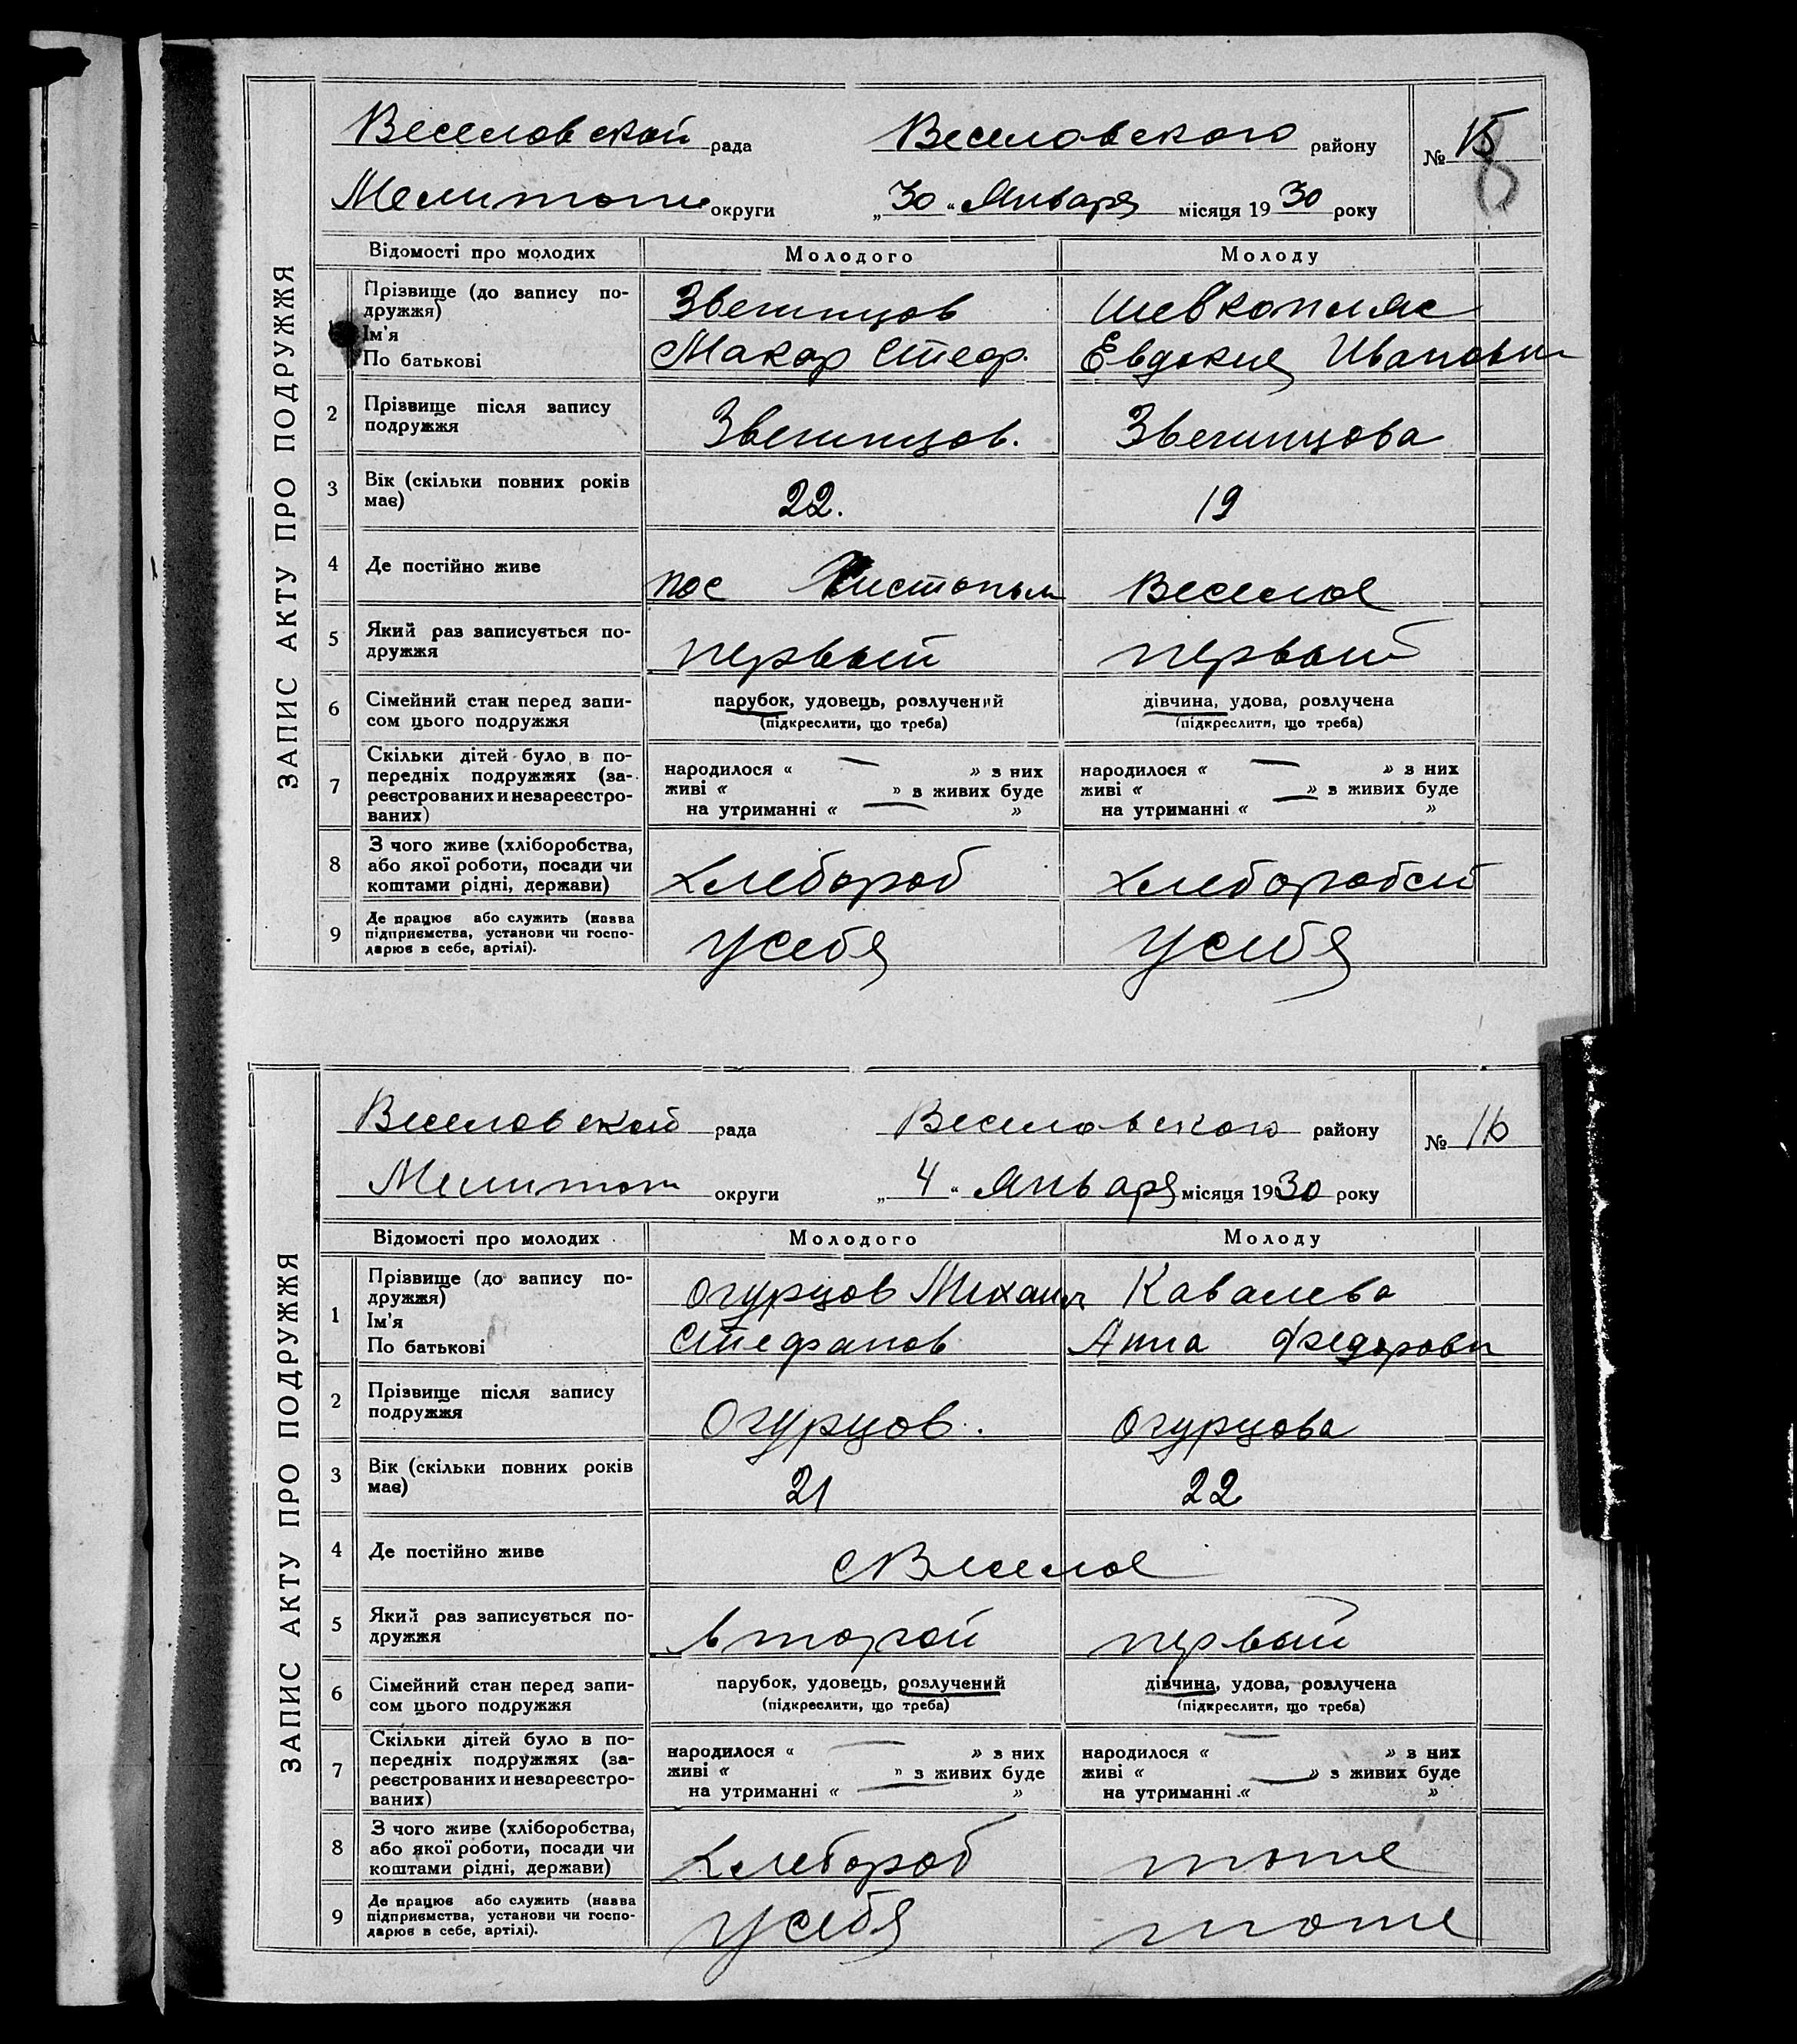 ЗАПИС АКТУ ПРО ПОДРУЖЖЯ
Веселовской рада Веселовского району № 15
8
Мелитоп округи „30“ Января місяця 1930 року
Відомості про молодих Молодого Молоду
Прізвище (до запису по- Звегинцов Шевкопляс
дружжя)
Ім'я
По батькові Макар Стеф. Евдокия Ивановн
2 Прізвище після запису
подружжя Звегинцов. Звегинцова
3 Вік (скільки повних років
має) 22. 19
4 Де постійно живе пос Веселое
5 Який раз записується по-
дружжя первый первый
6 Сімейний стан перед запи- парубок, удовець, розлучений дівчина, удова, розлучена
сом цього подружжя (підкреслити, що треба) (підкреслити, що треба)
7 Скільки дітей було в по-
передніх подружжях (за- народилося « — » з них народилося « — » з них
реєстрованих и незареєстро- живі « » з живих буде живі « » з живих буде
ваних) на утриманні « — » на утриманні « — »
8 З чого живе (хліборобства,
або якої роботи, посади чи
коштами рідні, держави) хлебороб хлеборобой
9 Де працює або служить (назва
підприємства, установи чи госпо-
дарює в себе, артілі). у себя у себя
ЗАПИС АКТУ ПРО ПОДРУЖЖЯ
Веселовской рада Веселовского району № 16
Мелитоп округи „4“ Января місяця 1930 року
Відомості про молодих Молодого Молоду
1 Прізвище (до запису по- Огурцов Михаил Кавалева
дружжя)
Ім'я
По батькові Стефанов Анна Федоровн
2 Прізвище після запису
подружжя Огурцов. Огурцова
3 Вік (скільки повних років
має) 21 22
4 Де постійно живе с Веселое
5 Який раз записується по-
дружжя второй первый
6 Сімейний стан перед запи- парубок, удовець, розлучений дівчина, удова, розлучена
сом цього подружжя (підкреслити, що треба) (підкреслити, що треба)
7 Скільки дітей було в по-
передніх подружжях (за- народилося « — » з них народилося « — » з них
реєстрованих и незареєстро- живі « » з живих буде живі « » з живих буде
ваних) на утриманні « — » на утриманні « — »
8 З чого живе (хліборобства,
або якої роботи, посади чи
коштами рідні, держави) хлебороб тоже
9 Де працює або служить (назва
підприємства, установи чи госпо-
дарює в себе, артілі). у себя тоже